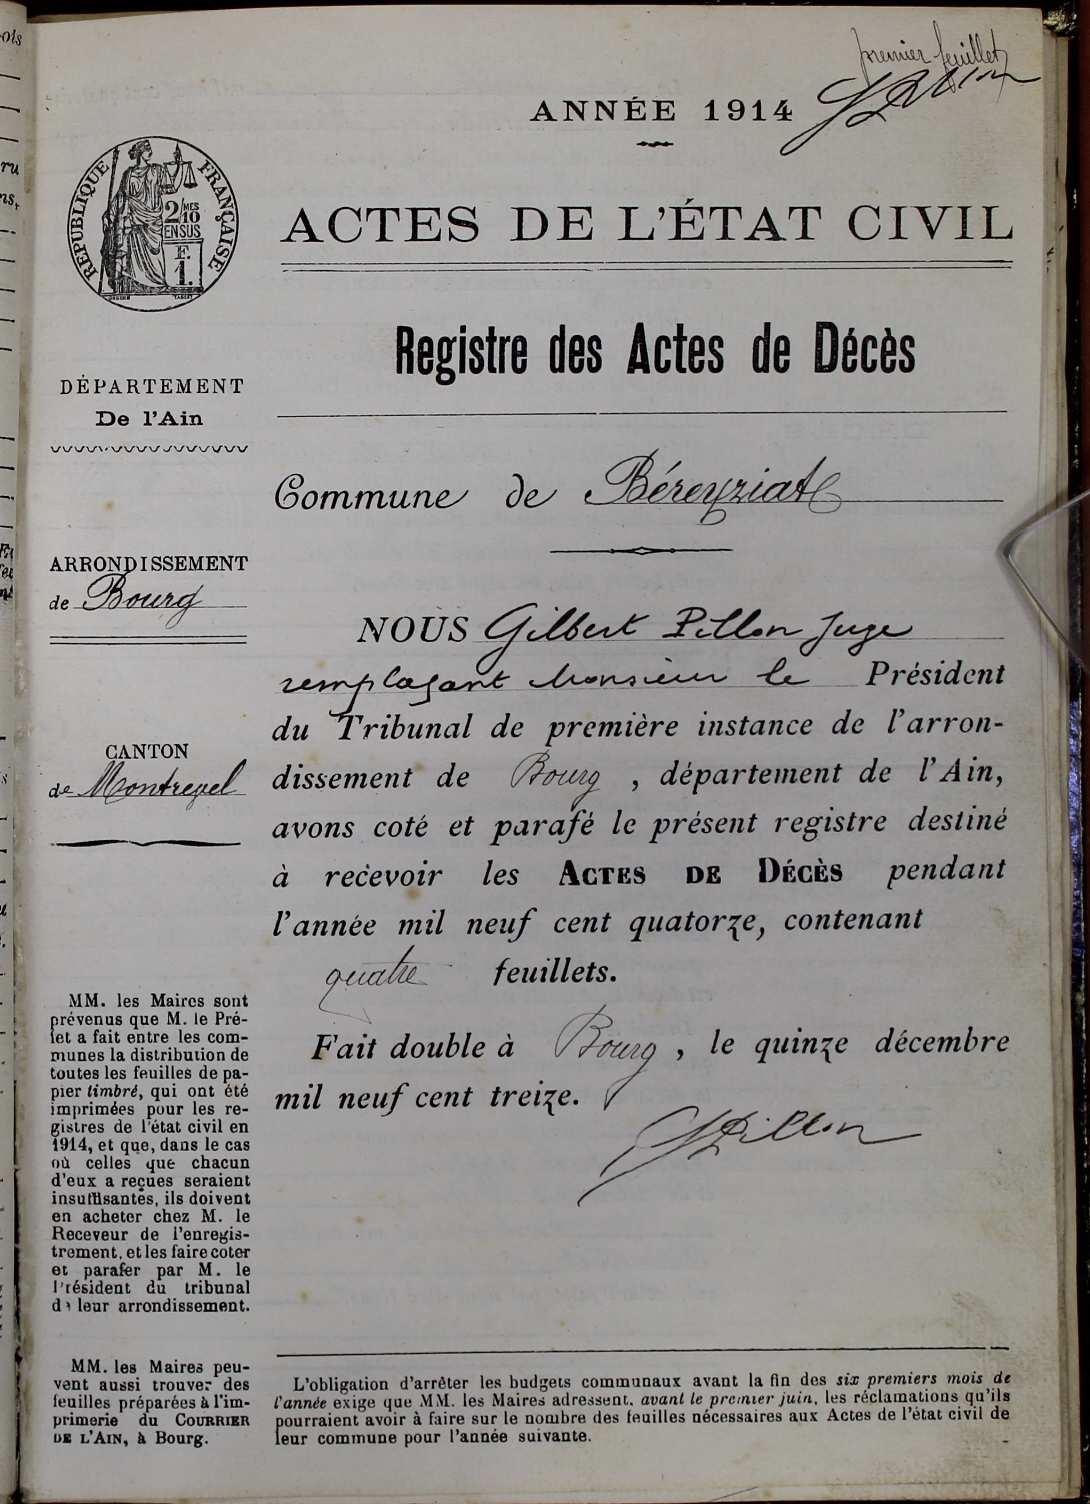 premier feuillet
GPillon
ANNÉE 1914
RÉPUBLIQUE FRANÇAISE
2/MES
10
EN SUS
F.
1.
ACTES DE L'ÉTAT CIVIL
Registre des Actes de Décès
DÉPARTEMENT
De l'Ain
Commune de Béreyziat
ARRONDISSEMENT
de Bourg
NOUS Gilbert Pillon Juge
remplaçant Monsieur le Président
du Tribunal de première instance de l'arron-
dissement de Bourg, département de l'Ain,
avons coté et parafé le présent registre destiné
à recevoir les ACTES DE DÉCÈS pendant
l'année mil neuf cent quatorze, contenant
quatre feuillets.
Fait double à Bourg, le quinze décembre
mil neuf cent treize.
GPillon
CANTON
de Montrevel
MM. les Maires sont
prévenus que M. le Pré-
fet a fait entre les com-
munes la distribution de
toutes les feuilles de pa-
pier timbré, qui ont été
imprimées pour les re-
gistres de l'état civil en
1914, et que, dans le cas
où celles que chacun
d'eux a reçues seraient
insuffisantes, ils doivent
en acheter chez M. le
Receveur de l'enregis-
trement, et les faire coter
et parafer par M. le
Président du tribunal
de leur arrondissement.
MM. les Maires peu-
vent aussi trouver des
feuilles préparées à l'im-
primerie du COURRIER
DE L'AIN, à Bourg.
L'obligation d'arrêter les budgets communaux avant la fin des six premiers mois de
l'année exige que MM. les Maires adressent, avant le premier juin, les réclamations qu'ils
pourraient avoir à faire sur le nombre des feuilles nécessaires aux Actes de l'état civil de
leur commune pour l'année suivante.